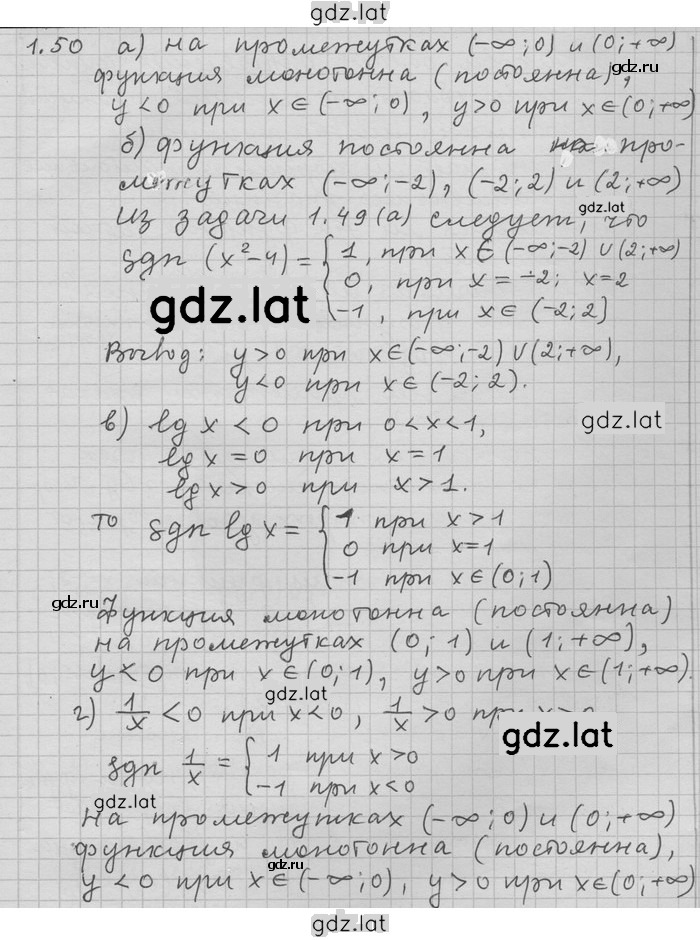 gdz.lat
1.50 а) на промежутках (-∞; 0) и (0; +∞)
функция монотонна (постоянна),
y < 0 при x ∈ (-∞; 0), y > 0 при x ∈ (0; +∞)
б) функция постоянна на про-
межутках (-∞; -2), (-2; 2) и (2; +∞)
Из задачи 1.49(а) следует, что
sgn (x²-4) = { 1, при x ∈ (-∞; -2) ∪ (2; +∞)
0, при x = -2; x = 2
-1, при x ∈ (-2; 2]
gdz.lat
Вывод: y > 0 при x ∈ (-∞; -2) ∪ (2; +∞),
y < 0 при x ∈ (-2; 2).
gdz.lat
в) lg x < 0 при 0 < x < 1,
lg x = 0 при x = 1
lg x > 0 при x > 1.
то sgn lg x = { 1 при x > 1
0 при x = 1
-1 при x ∈ (0; 1)
gdz.ru
Функция монотонна (постоянна)
на промежутках (0; 1) и (1; +∞),
y < 0 при x ∈ (0; 1), y > 0 при x ∈ (1; +∞).
gdz.lat
г) 1/x < 0 при x < 0, 1/x > 0 при x > 0
gdz.lat
sgn 1/x = { 1 при x > 0
-1 при x < 0
gdz.lat
на промежутках (-∞; 0) и (0; +∞)
функция монотонна (постоянна),
gdz.ru
y < 0 при x ∈ (-∞; 0), y > 0 при x ∈ (0; +∞)
gdz.lat